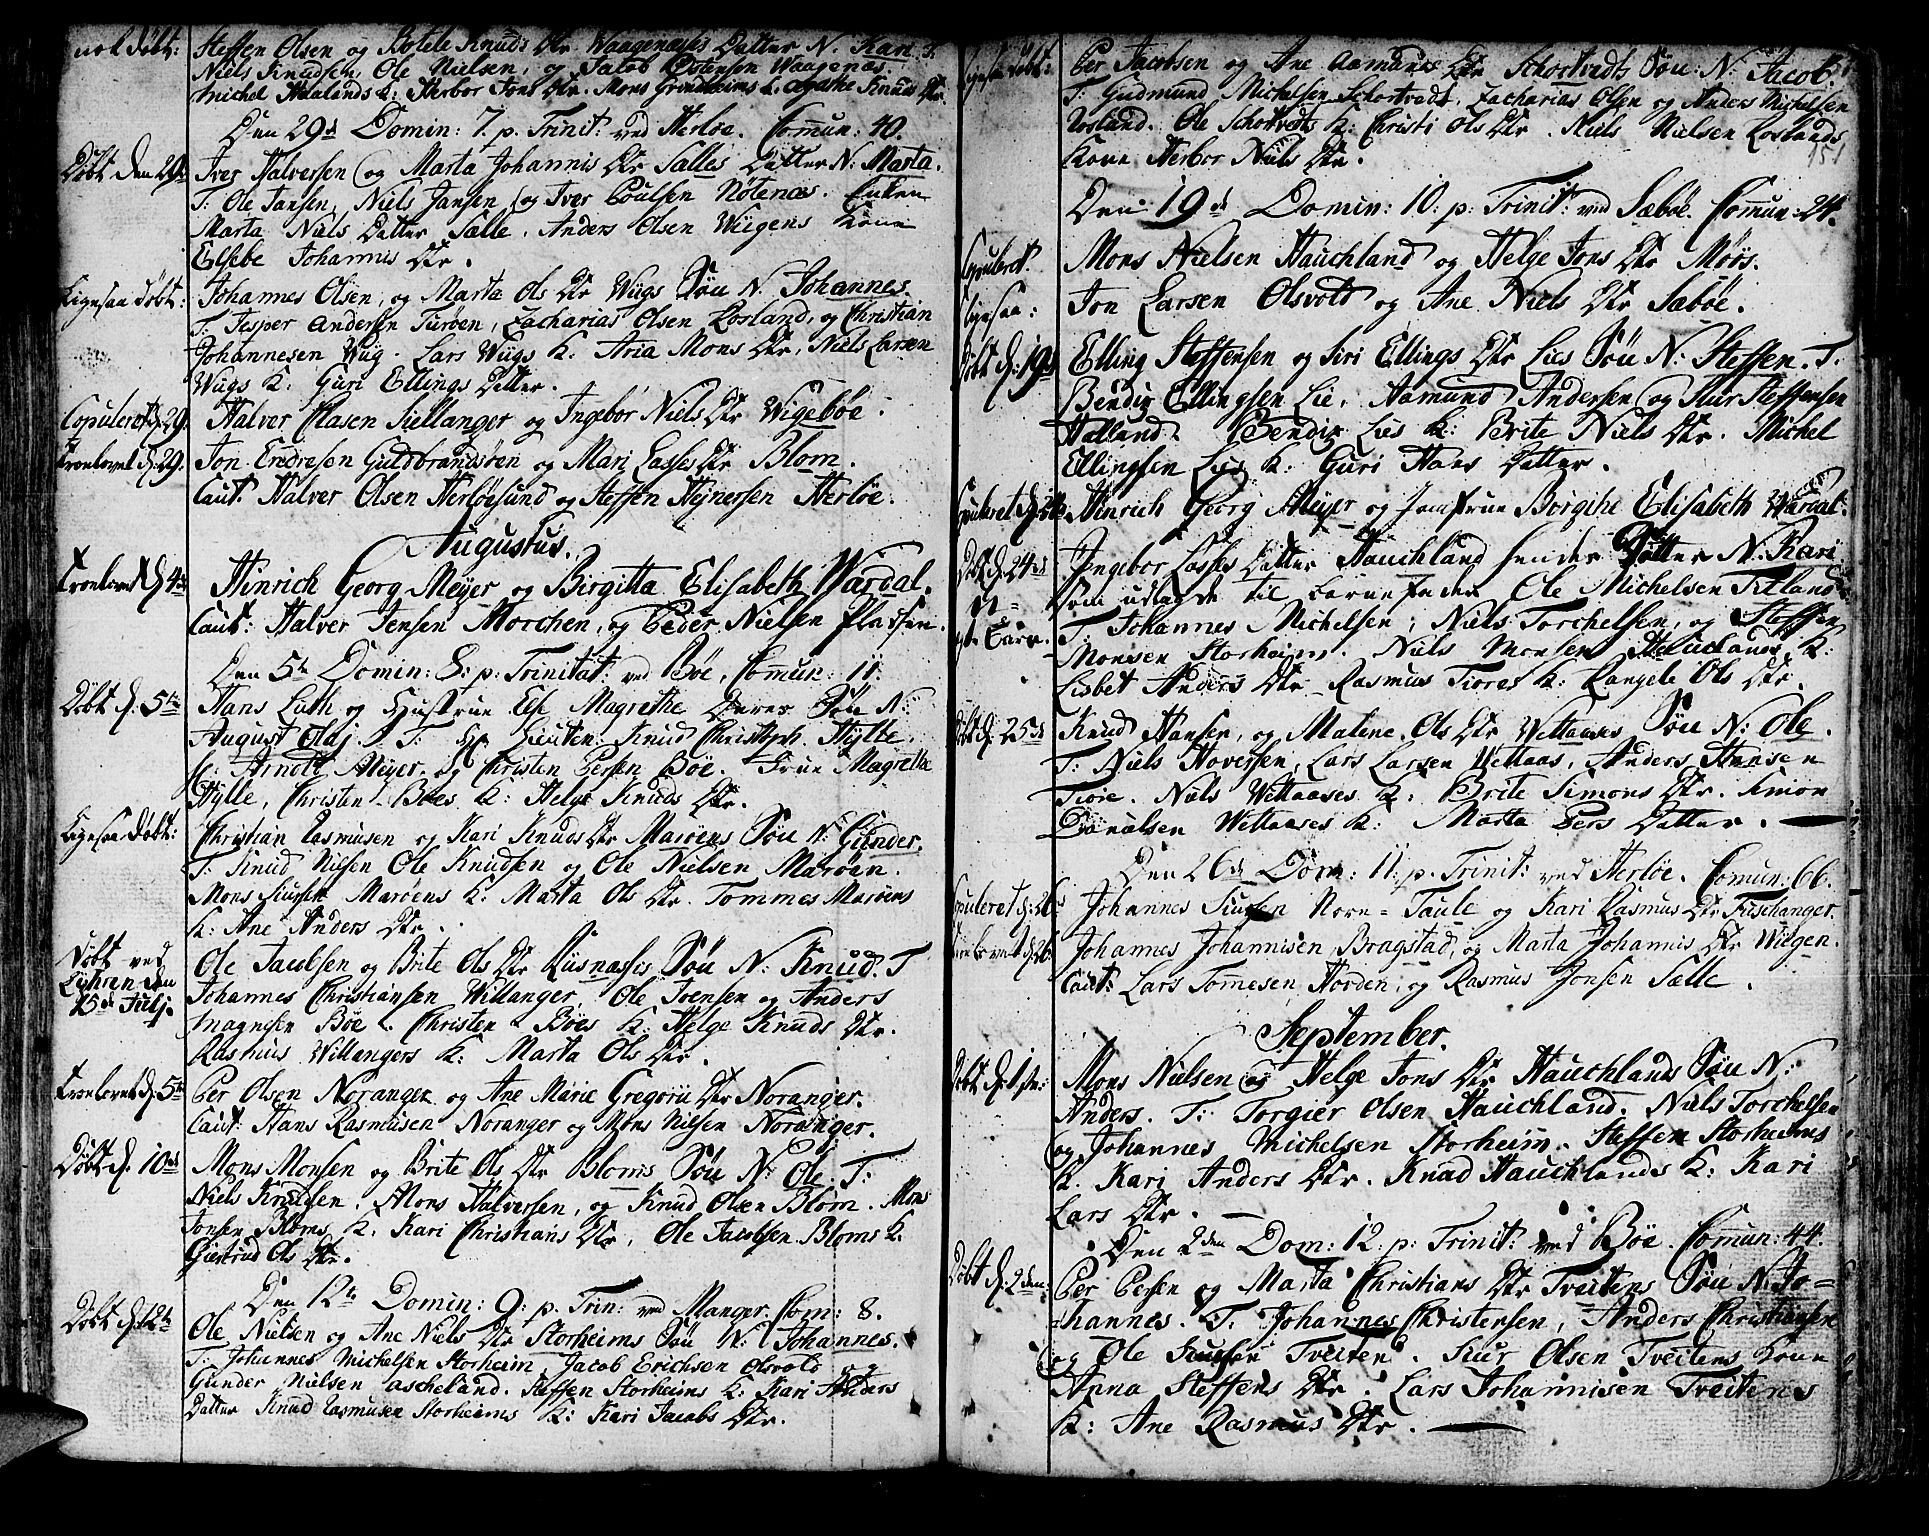 nok døbt:
Steffen Olsen og Botele Knuds Dtr Waagenæses Datter N. Kari T.
Niels Knudsen, Ole Nielsen, og Jacob Waagenæs
Michel Haalands K: Herbor Jons Dtr. Mons Grindheims K. Agathe Knuds Dtr.
Den 29de Domin: 7. p. Trinit: ved Herløe. Comun: 40.
Døbt den 29de
Iver Halversen og Marta Johannis Dtr Salles Datter N: Marta.
T: Ole Jansen, Niels Jansen og Iver Poulsen Nøtenæs. Enken
Marta Niels Datter Sælle. Anders Olsen Wiigens Kone
Elsebe Johannis Dtr.
Ligesaa døbt:
Johannes Olsen, og Marta Ols Dtr Wiigs Søn N. Johannes
T. Jesper Andersen Turøen, Zacharias Olsen Rosland, og Christian
Johannesen Wiig. Lars Wiigs K: Aria Mons Dtr. Niels Larsen
Wiigs K: Guri Ellings Datter.
Copuleret d. 29.
Halver Clasen Siellanger og Ingebor Niels Dtr Wigebøe.
Troelovet d: 29.
Jon Endresen Guldbrandsøen og Mari Lasses Dtr Blom.
Caut. Halver Olsen Herløesund og Steffen Hejnersen Herløe.
Augustus.
Troelovet d. 4de
Hinrich Georg Meyer og Birgitta Elisabeth Wardal.
Caut: Halver Jensen Morchen, og Peder Nielsen Pladsen.
Den 5te Domin: 8: p: Trinitat: ved Bøe, Comun: 11.
Døbt d. 5te
Hans Luth og Hustrue Else Magrethe Deres Søn N:
August Olaj. T: Hr Lieuten: Knud Christoph. Hylle.
Hr: Arnold Meyer, og Christen Persen Bøe. Frue Magretta
Hylle, Christen Bøes K: Helge Knuds Dtr.
Ligesaa døbt:
Christian Rasmusen og Kari Knuds Dtr Marøens Søn N: Gunder.
T: Knud Nilsen Ole Knudsen og Ole Nielsen Marøen.
Mons Siursen Marøens K: Marta Ols Dtr. Tommes Marøens
K: Ane Anders Dtr.
Døbt ved
Lyhren den
15de Julj.
Ole Jacobsen og Brite Ols Dtr Riisnæsses Søn N. Knud. T
Johannes Christiansen Willanger, Ole Ivensen og Anders
Magnesen Bøe. Christen Bøes K: Helge Knuds Dtr.
Rasmus Willangers K: Marta Ols Dtr.
Troelovet d. 5te
Per Olsen Noranger og Ane Marie Gregorii Dtr Noranger.
Caut: Hans Rasmusen Noranger og Mons Nilsen Noranger.
Døbt d. 10de
Mons Monsen og Brite Ols Dtr Bloms Søn N: Ole. T:
Niels Knudsen. Mons Halversen, og Knud Olsen Blom. Mons
Jonsen Bloms K: Kari Christians Dtr, Ole Jacobsen Bloms K.
Giertrud Ols Dtr.
Den 12te Domin: 9: p: Trin: ved Manger. Com: 8.
Døbt d: 12te
Ole Nielsen og Ane Niels Dtr Storheims Søn N: Johannes.
T: Johannes Michelsen Storheim, Jacob Erichsen Olsvold og
Gunder Nielsen Ascheland. Steffen Storheims K: Kari Anders
Datter Knud Rasmusen Storheims K: Kari Jacobs Dtr.
Ligesaa døbt:
Per Jacobsen og Ane Aamunds Dtr Schortvedts Søn: N: Jacob.
T: Gudmund Michelsen Schortvedt, Zacharias Olsen og Anders Michelsen
Rosland. Ole Schortvedts K: Christi Ols Dtr. Niels Nielsen Roslands
Kone Herbor Niels Dtr.
151
Den 19de Domin: 10: p: Trinit: ved Sæbøe. Comun: 24.
Copuleret.
Mons Nielsen Hauchland og Helge Jons Dtr Mørs.
ligesaa:
Jon Larsen Olsvold og Ane Niels Dtr Sæbøe.
Døbt d: 19de
Elling Steffensen og Siri Ellings Dtr Lies Søn N: Steffen. T:
Bendix Ellingsen Lie, Aamund Andersen og Siur Steffensen
Halland. Bendix Lies K: Brite Niels Dtr. Michel
Ellingsen Lies K: Guri Hans Datter.
Copuleret d.
Hinrich Georg Meyer og Jomfrue Borgithe Elisabeth Wardal.
Døbt d: 24de
Ingebor Lasses Datter Hauchland hendes Datter N: Kari
Som udlagde til Barnefader Ole Michelsen Titland
T: Johannes Michelsen, Niels Torchelsen, og Steffen
Monsen Storheim. Niels Monsen Hauclands K:
Lisbet Anders Dtr. Rasmus Fiores K: Rangele Ols Dtr.
Døbt d: 25de
Knud Hansen, og Malene Ols Dtr Wettaases Søn N: Ole.
T: Niels Hoversen, Lars Larsen Wettaas, Anders Hansen
Fiore. Niels Wettaases K: Brite Simons Dtr. Simon
Danielsen Wettaases K: Marta Pers Datter.
Den 26de Dom: 11: p: Trinit: ved Herløe. Comun: 66.
Copuleret d: 26
Johannes Siursen Norn=Taule og Kari Rasmus Dtr Tuschanger.
Troelovet d: 26
Johannes Johannisen Bragstad, og Marta Johannis Dtr Wiigen.
Caut: Lars Tomesen Horden, og Rasmus Jonsen Sælle.
September.
Døbt d: 1ste:
Mons Nielsen og Helge Jons Dtr Hauchlands Søn N:
Anders. T: Torgier Olsen Hauchland. Niels Torchelsen
og Johannes Michelsen Storheim. Steffen Storheims
K. Kari Anders Dtr. Knud Hauchlands K: Kari
Lars Dtr.
Den 2den Dom: 12: p: Trinit: ved Bøe. Comun: 44.
Døbt d. 2den
Per Persen og Marta Christians Dtr Tveitens Søn N: Jo=
=hannes. T. Johannes Christensen, Anders Christiansen
og Ole Siursen Tveiten. Siur Olsen Tveitens Kone
Anna Steffens Dtr. Lars Johannisen Tveitens
K: Ane Rasmus Dtr.